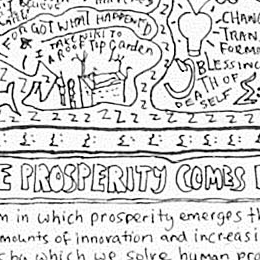 believe
FORGOT WHAT HAPPENED
I TAKE WIKI TO
A ROOFTOP Garden
CHANG
TRAN
FORM
BLESSING
DEATH OF
SELF
Z Z Z Z Z Z Z
£: £: £: £: £:
E PROSPERITY COMES
m in which prosperity emerges th
mounts of innovation and increasi
by which we solve human pro